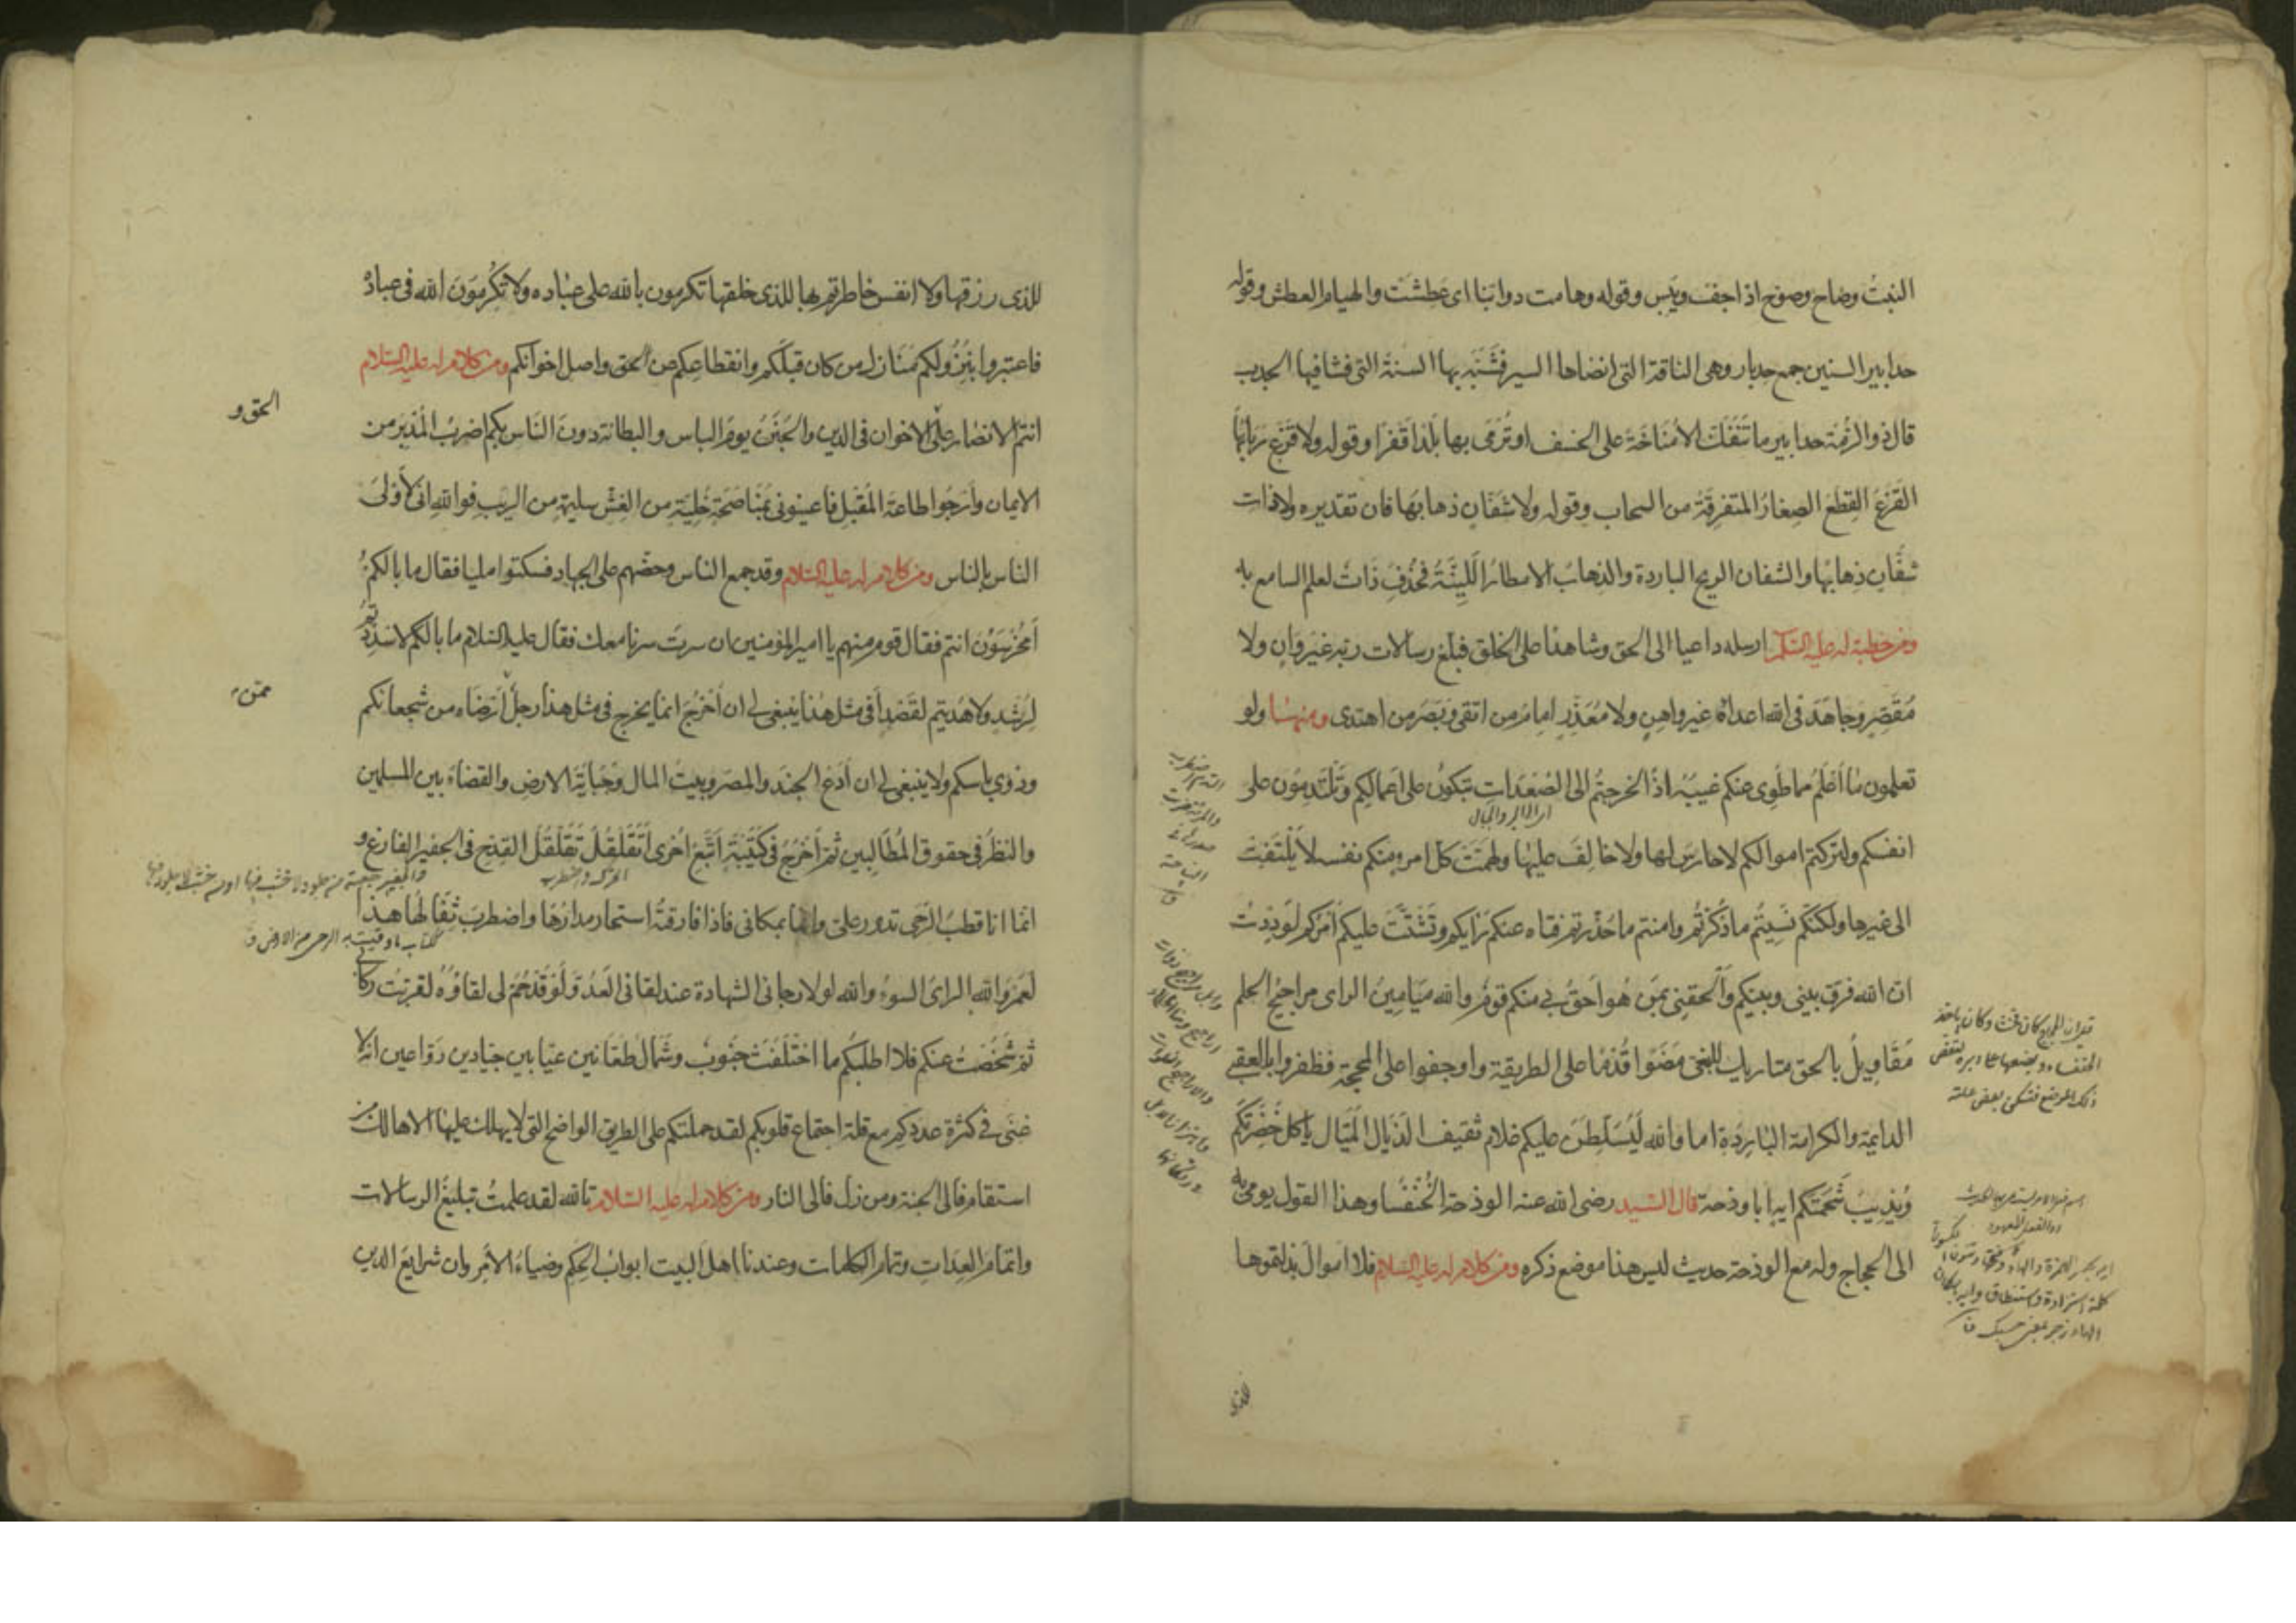 النبتُ وصاح وصوح اذا جف ويَبِس وقوله وهامت دوابنا اى عَطِشَت والهيام العطش وقوله
حدابير السنين جمع حدبار وهى الناقة التى انضاها السير فشَبَّهَ بها السنة التى فشا فيها الجدب
قال ذو الرمة حدابير ما تنفك الا مُناخة على الخسف او نرمى بها بلدا قفرا وقوله ولا قَزَعٍ رَبابُها
القَزَعُ القِطَعُ الصِغارُ المتفرقةُ من السحاب وقوله ولا شَفّانٍ ذِهابُها فان تقديره ولا ذات
شفّانٍ ذِهابُها والشفان الريح الباردة والذِهابُ الامطارُ اللَّيِّنَةُ فحُذِفَ ذاتُ لعلم السامع به
ومن خطبة له عليه السّلام ارسله داعيا الى الحق وشاهدا على الخلق فبلغ رسالات ربه غيرَ وانٍ ولا
مُقَصِّرٍ وجاهَدَ فى الله اعداءَهُ غير واهنٍ ولا معَذِّرٍ امامُ من اتقى وبَصَرُ من اهتدى ومنها ولو
تعلمون ما اَعْلَمُ مما طُوِىَ عنكم غيبُهُ اذاً لخرجتُم الى الصُعَداتِ تبكون على اعمالكم وتَلْتَدِمُون على
انفسكم ولتركتم اموالكم لا حارسَ لها ولا خالِفَ عليها ولهمّت كل امرءٍ منكم نفسه لا يَلْتَفِتُ
الى غيرها ولكنكم نَسِيتُم ما ذُكِّرْتُم وامنتم ما حُذِّرتم فتاه عنكم رَأيُكم وتَشَتَّتَ عليكم اَمْرُكم لوَدِدتُ
ان الله فرق بينى وبينكم واَلْحَقنى بمَن هُو اَحَقُّ بى منكم قومٌ والله مَيامِينُ الراى مراجيحُ الحلم
مَقاويلُ بالحق متاريك للبغى مَضَوْا قُدُمًا على الطريقة واوجفوا على المحجة فظفروا بالعقبى
الدايمة والكرامة الباردة اما والله لَيُسَلَّطَنَّ عليكم غلام ثقيف الذَيّال المَيّال ياكل خَضِرَتَكُم
ويُذِيبُ شَحْمَتَكم ايهٍ ابا وذحة قال السّيد رضى الله عنه الوذحة الخُنْفُسا وهذا القول يومى به
الى الحجاج وله مع الوذحة حديث ليس هذا موضع ذكره ومن كلام له عليه السّلام فلا اموالَ بذلتموها
للذى
للذى رزقها ولا انفس خاطرتم بها للذى خلقها تكرمون بالله على عباده ولا تُكْرِمُونَ الله فى عباده
فاعتبروا بنزُولكم مَنازل من كان قبلكم وانقطاعِكم عن الحق واصل اخوانكم ومن كلام له عليه السّلام
الحق و
انتم الانصار على الاخوان فى الدين والجُنَنُ يومَ الباس والبطانة دونَ الناس بكم اضرِبُ المُدْبِرَ من
الايمان وأَرْجُوا طاعةَ المُقْبِل فاعينونى بمُناصَحَةٍ خَلِيَّةٍ من الغِشّ سليمةٍ من الريب فوالله انى لأَوْلَى
الناس بالناس ومن كلام له عليه السّلام وقد جمع الناس وحضّهم على الجهاد فسكتوا مليا فقال ما بالكم
أَمُخْرَسُونَ انتم فقال قوم منهم يا امير المؤمنين ان سرتَ سرنا معك فقال عليه السّلام ما بالكم لا سُدِّدتم
لِرُشْدٍ ولا هُديتم لقَصْدٍ أفى مثل هذا ينبغى لى ان أَخْرُجَ انما يخرج فى مثل هذا رجلٌ اَرْضاه من شجعانكم
ممّن
وذوي باسكم ولا ينبغى لى ان أَدَعَ الجندَ والمصرَ وبيتَ المال وجِبايَةَ الارضِ والقضاءَ بين المسلمين
والنظرَ فى حقوق المُطالِبِين ثم أَخْرُجَ فى كَتِيبَةٍ أَتْبَعُ اُخرى أَتَقَلْقَلُ تَقَلْقُلَ القِدْحِ فى الجفير الفارغ و
انّما انا قطبُ الرَحى تدور علىّ وانا بمكانى فاذا فارقتُهُ استحار مدارُها واضطربَ ثِفالُها هذا
لعَمْرُ الله الراىُ السوءُ والله لولا رجائى الشهادة عند لقائى العَدُوَّ لو قد حُمّ لى لقاؤهُ لقربْتُ ركابى
ثم شَخَصْتُ عنكم فلا اطلبكم ما اختلفَتْ جَنوبٌ وشَمالٌ طعّانين عيّابين حيّادين روّاعين انه لا
غنى فى كثرة عددكم مع قلة اجتماع قلوبكم لقد حملتكم على الطريق الواضح التى لا يهلك عليها الا هالك من
استقام فالى الجنة ومن زل فالى النار ومن كلام له عليه السّلام تالله لقد علمتُ تبليغَ الرسالات
واتمامَ العِداتِ وتمامَ الكلمات وعندنا اهلَ البيت ابوابُ الحِكَم وضياءُ الاَمْرِ وان شرايعَ الدين